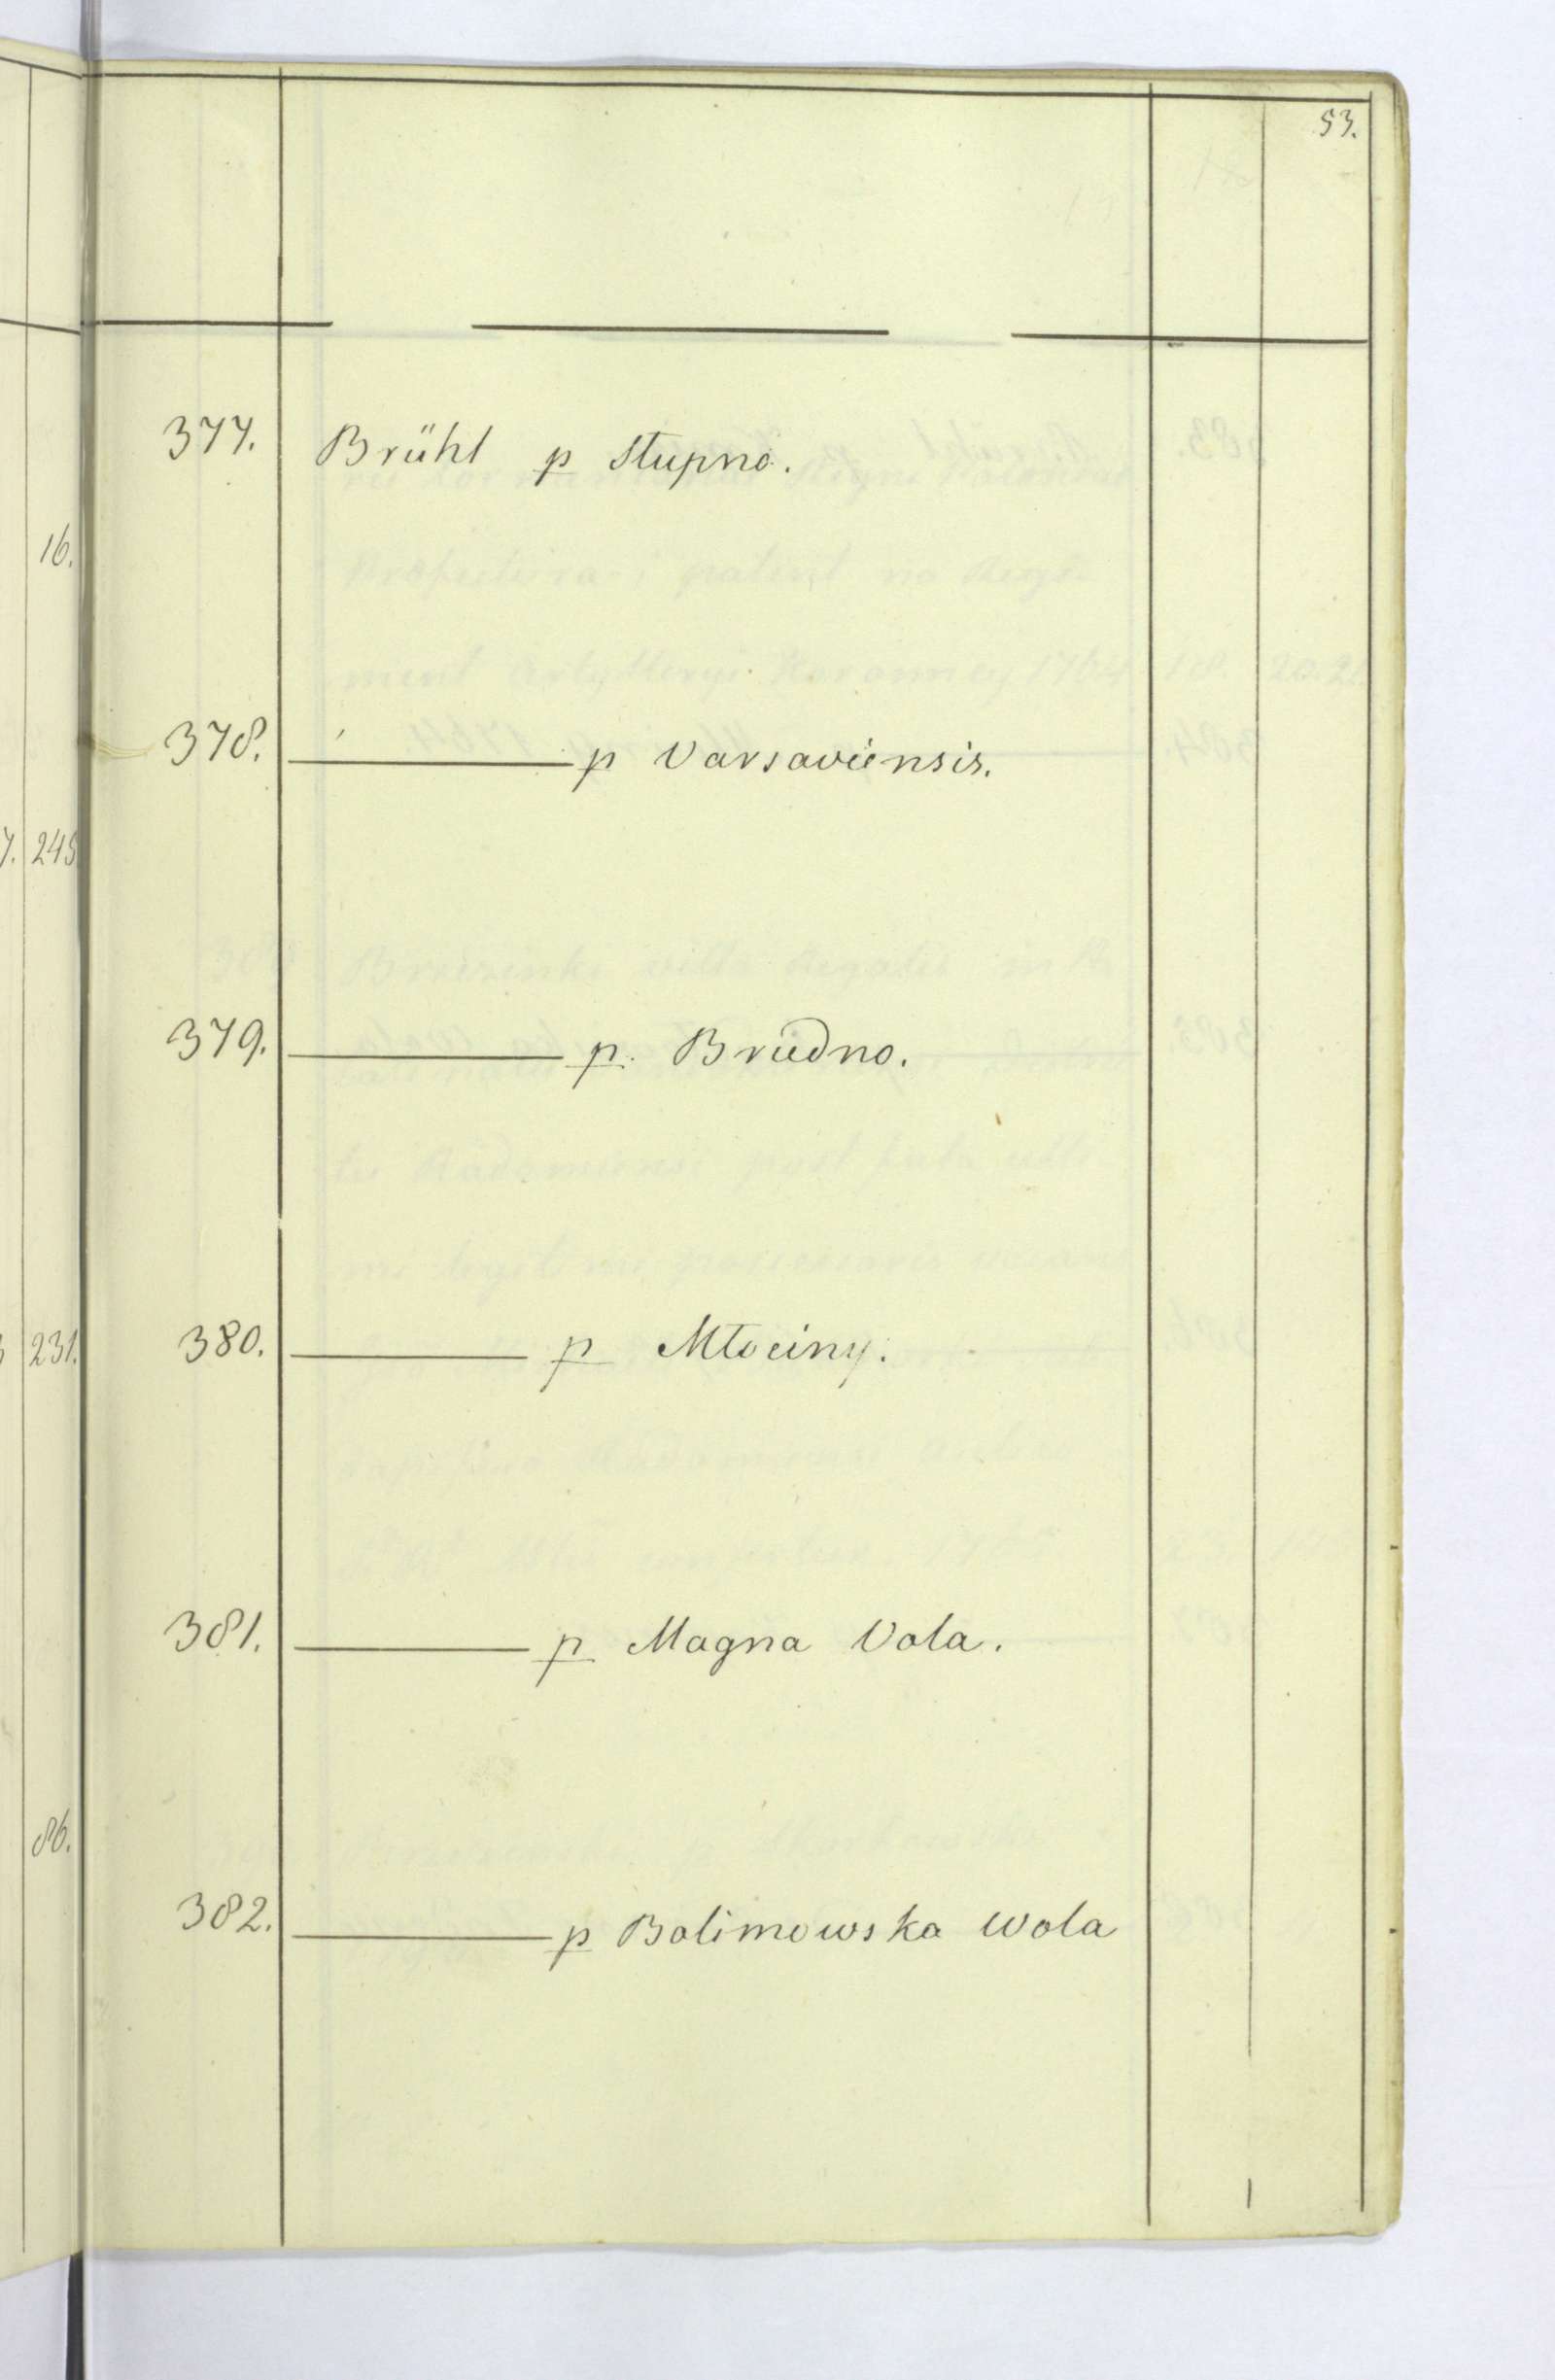 53.
377. Brühl p Stupno.
378. ——— p Varsaviensis.
379. ——— p. Brudno.
380. ——— p Młociny.
381. ——— p Magna Vola.
382. ——— p Bolimowska Wola
16.
7. 245
231.
86.